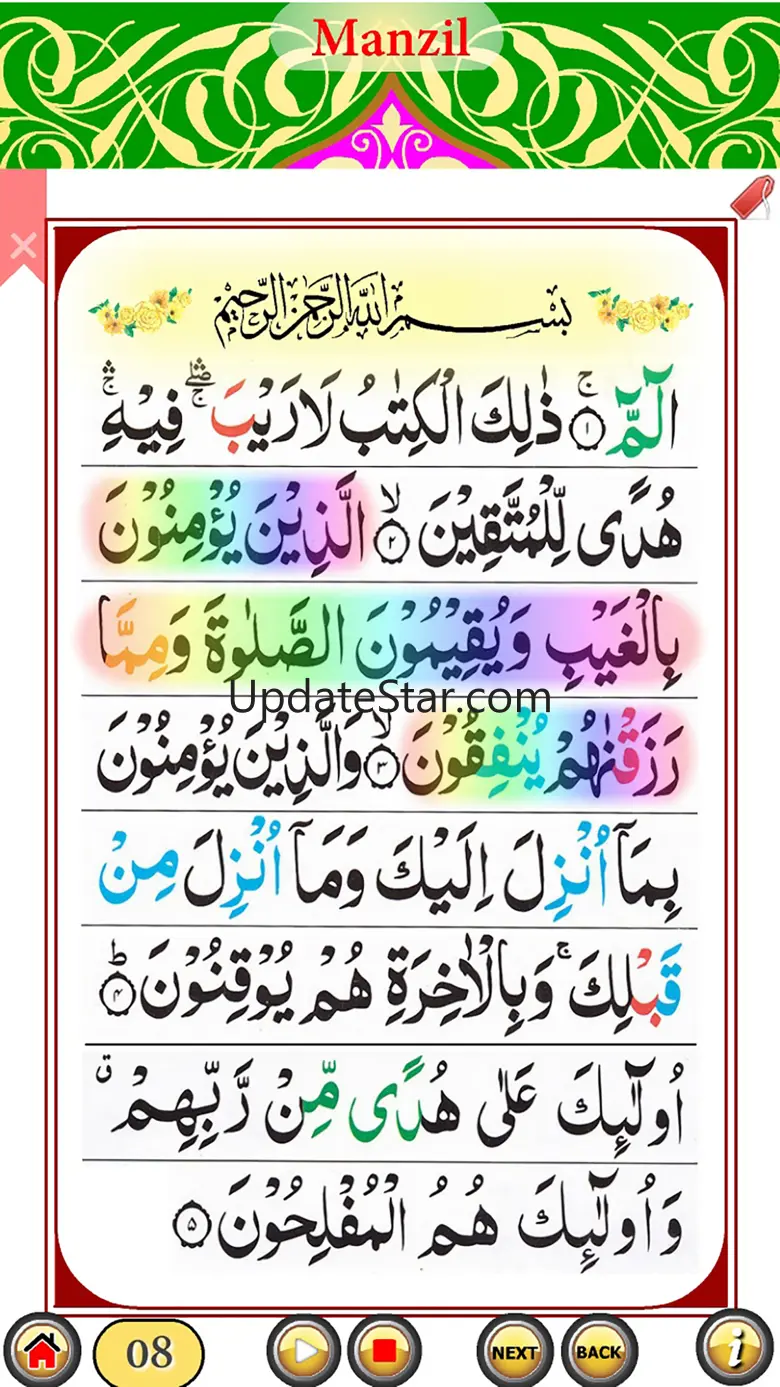 Manzil
بسم الله الرحمن الرحيم
الٓمّٓ ۚ ۝۱ ذٰلِكَ الْكِتٰبُ لَا رَيْبَ ۛۖۚ فِيْهِ ۛۚ
هُدًى لِّلْمُتَّقِيْنَ ۙ ۝۲ الَّذِيْنَ يُؤْمِنُوْنَ
بِالْغَيْبِ وَيُقِيْمُوْنَ الصَّلٰوةَ وَمِمَّا
UpdateStar.com
رَزَقْنٰهُمْ يُنْفِقُوْنَ ۙ ۝۳ وَالَّذِيْنَ يُؤْمِنُوْنَ
بِمَآ اُنْزِلَ اِلَيْكَ وَمَآ اُنْزِلَ مِنْ
قَبْلِكَ ۚ وَبِالْاٰخِرَةِ هُمْ يُوْقِنُوْنَ ؕ ۝۴
اُولٰٓئِكَ عَلٰى هُدًى مِّنْ رَّبِّهِمْ ق
وَاُولٰٓئِكَ هُمُ الْمُفْلِحُوْنَ ۝۵
08
NEXT
BACK
i